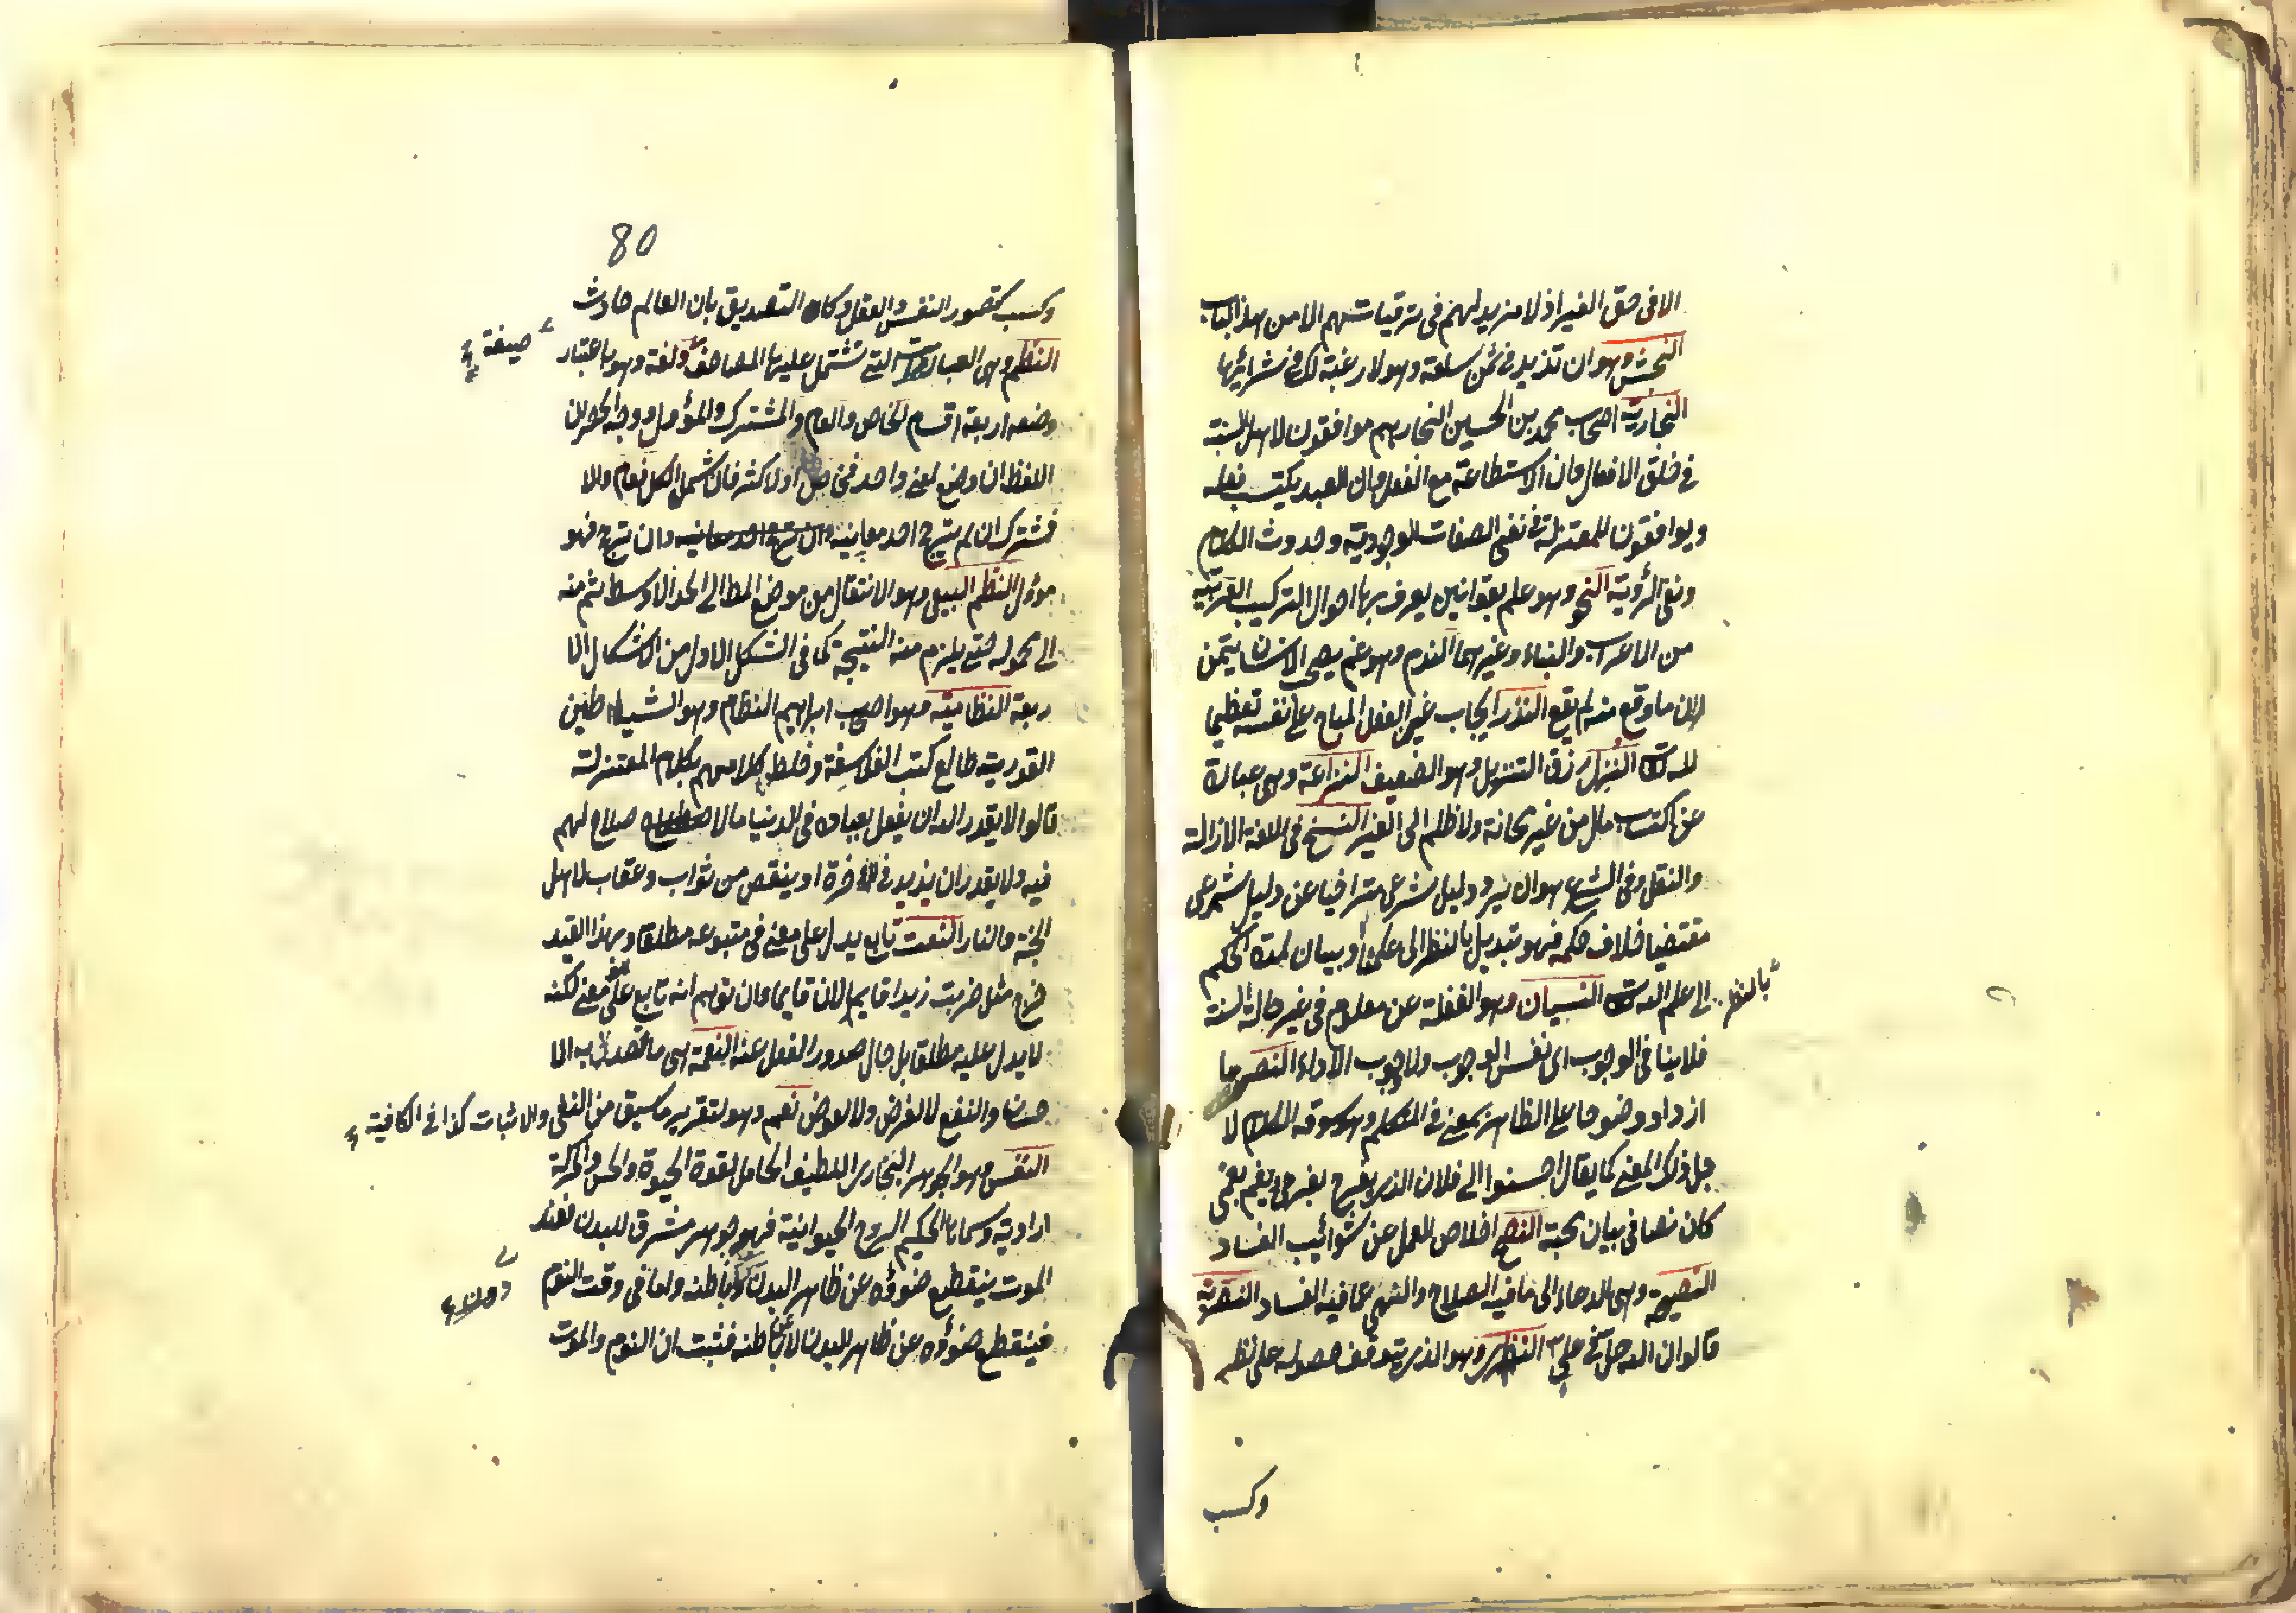 الا فى حق الغير اذ لا مزيد لهم فى ترقيات تهم الا من هذا الباب
النجش وهو ان تزيد فى ثمن سلعة وهو لا رغبة لك فى شرائها
النجارية اصحاب محمد بن الحسين النجار هم موافقون لاهل السنة
فى خلق الافعال وان الاستطاعة مع الفعل وان العبد يكتسب فعله
ويوافقون المعتزلة فى نفى الصفات الوجودية وحدوث الكلام
ونفى الرؤية النحو وهو علم بقوانين يعرف بها احوال التركيب العربية
من الاعراب والبناء وغيرهما الندم وهو غم يصيب الانسان يتمن
لان ما وقع منه لم يقع النذر ايجاب عين الفعل المباح على نفسه تعظيما
لله تعالى النزل رزق النزيل وهو الضعيف النزاعة وهى عبارة
عن اكتساب مال من غير مهانة ولا ظلم الى الغير النسخ فى اللغة الازالة
والنقل وفى الشرع هو ان يرد دليل شرعى متراخيا عن دليل شرعى
مقتضيا خلاف حكمه فهو تبديل بالنظر الى علمنا وبيان لمدة الحكم
بالنظر الى علم الله تعالى النسيان وهو الغفلة عن معلوم فى غير حالة السنة
فلا ينافى الوجوب اى نفس الوجوب ولا وجوب الاداء النص ما
ازداد وضوحا على الظاهر بمعنى فى المتكلم وهو سوق الكلام لا
جل ذلك المعنى كما يقال احسنوا الى فلان الذى يفرح بفرحى ويغم بغمى
كان نصا فى بيان محبة النصح اخلاص العمل عن شوائب الفساد
النصيحة وهى الدعاء الى ما فيه الصلاح والنهى عما فيه الفساد النصيرية
قالوا ان الله حل فى على النظرى وهو الذى يتوقف حصوله على نظر
وكسب
80
وكسب كتصور النفس والعقل وكان التصديق بان العالم حادث
النظم وهى العبارات التى تشتمل عليها المصاحف صيغة ولغة وهو باعتبار
وضعه اربعة اقسام الخاص والعام والمشترك والمؤول ووجه الحصر ان
اللفظ ان وضع لمعنى واحد فخاص او لاكثر فان شمل الكل فعام والا
فمشترك ان لم يترجح احد معانيه وان ترجح احد معانيه وان ترجح فهو
مؤول النظم الطبيعى وهو الانتقال من موضع المط الى الحد الاوسط ثم منه
الى محموله حتى يلزم منه النتيجة كما فى الشكل الاول من الاشكال الا
ربعة النظامية وهو اصحاب ابراهيم النظام وهو الشياطين
القدرية طالع كتب الفلاسفة وخلط كلامهم بكلام المعتزلة
قالوا لا يقدر الله ان يفعل بعباده فى الدنيا ما لا صلاح لهم
فيه ولا يقدر ان يزيد فى الاخرة او ينقص من ثواب وعقاب لاهل
الجنة والنار النعت تابع يدل على معنى فى متبوعه مطلقا وبهذا القيد
خرج مثل ضربت زيدا قايما لان قايما وان توهم انه تابع يدل على معنى لكنه
لا يدل عليه مطلقا بل حال صدور الفعل عنه النعمة هى ما قصد به الا
حسان والنفع لا لغرض ولا لعوض نعم وهو لتقرير ما سبق من النفى والاثبات كذا فى الكافية
النفس وهو الجوهر البخارى اللطيف الحامل لقوة الحيوة والحس والحركة
ارادية وسماها الحكيم الروح الحيوانية فهو جوهر مشرق للبدن فعند
الموت ينقطع ضوؤه عن ظاهر البدن وباطنه واما فى وقت النوم
فينقطع ضوؤه عن ظاهر البدن لا عن باطنه فثبت ان النوم والموت